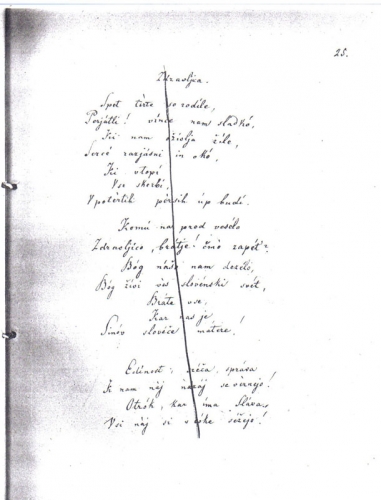 25.
Zdravljica.
Spet tèrte so rodile,
Perjátli! vínce nam sladkó,
Ki nam oživlja žile,
Sercé razjásni in okó,
Ki vtopí
Vse skerbí,
V potèrtih persih úp budí.
Komú nar pred veselo
Zdravljico, brátje! čmo zapét'?
Bóg našo nam deželo,
Bóg živi ves slovénski svét,
Brate vse,
Kar nas je
Sinóv slovèče mátere!
Edínost, sréča, správa
K nam náj nazáj se vérnejo!
Otrók, kar íma Sláva,
Vsi náj si v róke séžejo!